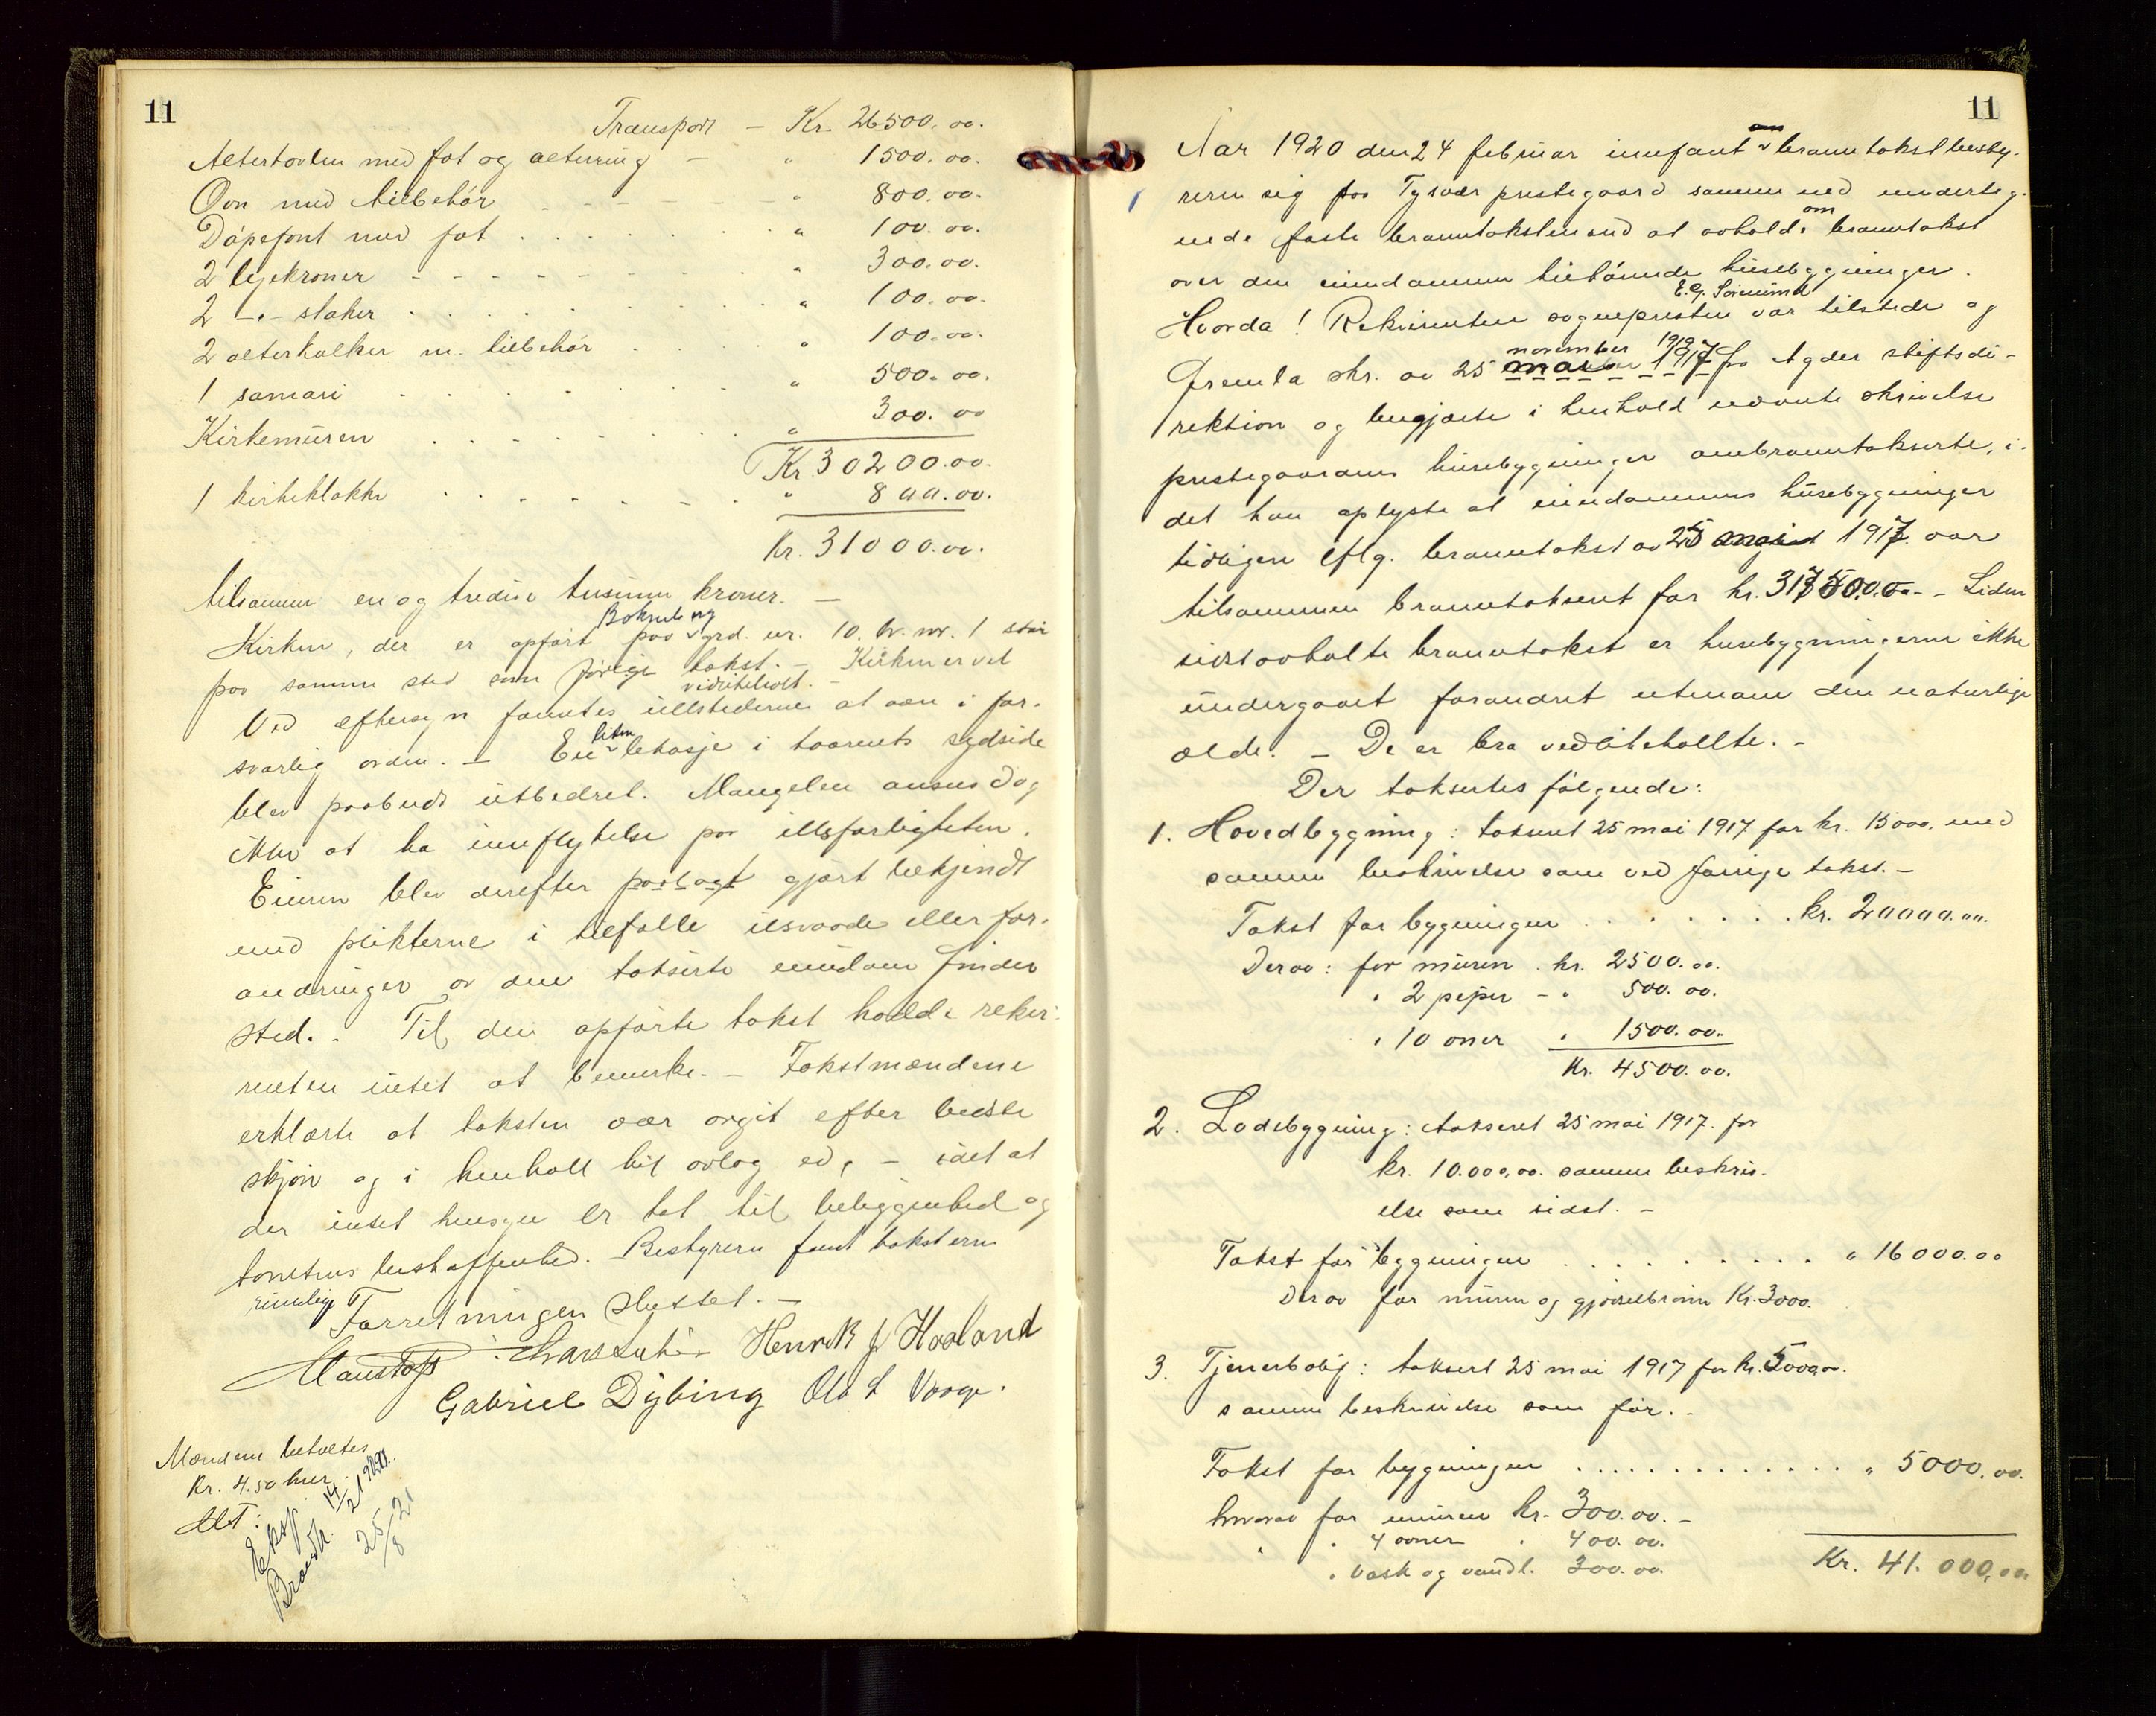 11
Transport - Kr. 26500.00.
Altertavlen med fot og alterring - " 1500.00.
Ovn med tilbehör - - - - - " 800.00.
Döpefont med fat . . . . . " 100.00.
2 lysekroner - - - - - - " 300.00.
2 -"- staker . . . . . " 100.00.
2 alterkalker m. tilbehör . . . " 100.00.
1 . . . . . " 500.00.
Kirkemuren . . . . . " 300.00
Kr. 30200.00.
1 kirkeklokke . . . . . " 800.00.
Kr. 31000.00.
tilsammen en og tredive tusinn kroner. -
Kirken, der er opfört paa Boknberg grd. nr. 10. br. nr. 1 staar
paa samme sted som forrige takst. - Kirken er vel
vedlikeholdt. -
Ved eftersyn fantes illstederne at være i for-
svarlig orden. - En liten lekasje i taarnets sydside
blev paabudt utbedret. Mangelen ansees dog
ikke at ha innflytelse paa illsfarligheten.
Eieren blev derefter paalagt gjört bekjendt
med plikterne i tilfælle ilsvaade eller for-
andringer av den takserte eiendom finder
sted. - Til den opförte takst hadde rekvi-
renten intet at bemerke. - Takstmændene
erklærte at taksten var avgit efter bedste
skjön og i henhold til avlag ed, - idet at
der intet hensyn er tat til beliggenhed og
tomtens beskaffenhed. Bestyreren fant takstene
rimelige
Forretningen sluttet. -
Henrik J Hasland
Gabriel Dybing Ola L Vaage.
Mændene betaltes
Kr. 4.50 hver.
Eksp. 14/2 1921.
Brandk. 25/8 21
11
Aar 1920 den 24 februar innfant branntakstbesty-
reren sig paa Tysvær prestegaard sammen med underteg-
nede faste branntakstmænd at avholde om branntakst
over den eiendommen tilhörende husebygninger.
Hvorda! Rekvirenten sognepresten E. G. Sörensen var tilstede og
fremla skr. av 25 november 1919 fra Agder stiftsdi-
rektion og begjærte i henhold nævnte skrivelse
prestegaardens husebygninger ombranntakserte, i-
det han oplyste at eiendommens husebygninger
tidligere iflg. branntakst av 25 mai 1917 var
tilsammen branntaksert for kr. 31750.00. - Siden
sidst avholte branntakst er husebygningerne ikke
undergaaet forandret utenom den naturlige
ælde. - De er bra vedlikehollte. -
Der taksertes fölgende:
1. Hovedbygning: taksert 25 mai 1917 for kr. 15000. med
samme beskrivelse som ved forrige takst. -
Takst for bygningen . . . . . . . kr. 20000.00.
Derav: for muren . kr. 2500.00.
" 2 peper - " 500.00.
" 10 ovner " 1500.00.
Kr. 4500.00.
2. Ladebygning: taksert 25 mai 1917. for
kr. 10.000,00. samme beskriv-
else som sidst. -
Takst for bygningen . . . . . . . . . " 16000.00
Derav for muren og gjödselbrönn Kr. 3000.
3. Tjenerbolig: taksert 25 mai 1917 for kr. 5000,00.
samme beskrivelse som för. -
Takst for bygningen . . . . . . . . . . . . " 5000.00.
hvorav for muren kr. 300.00. -
" " 4 ovner " 400.00.
" vask og vandl. 300.00.
Kr. 41.000,00